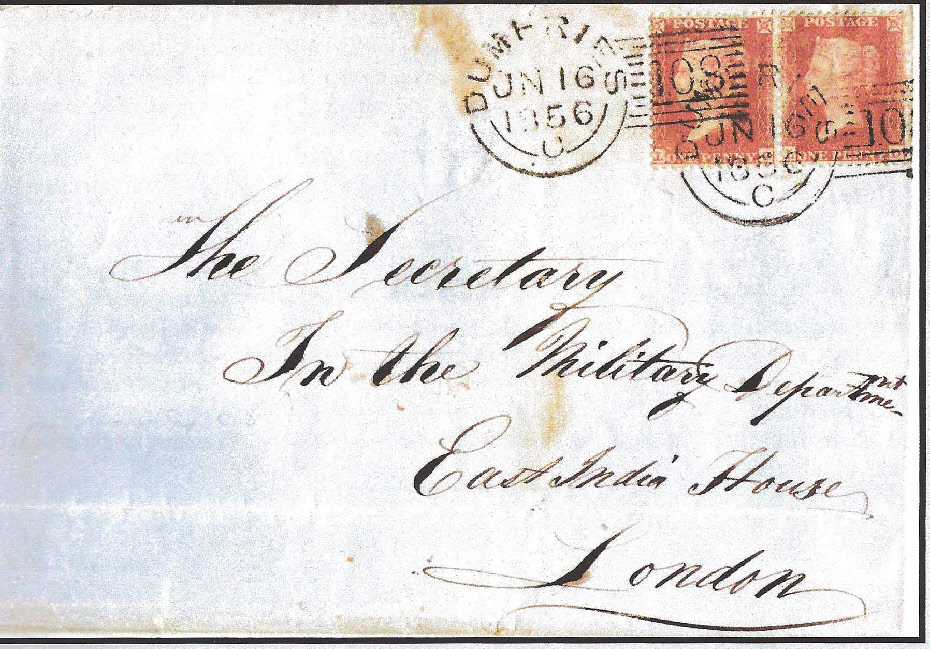 POSTAGE POSTAGE
DUMFRIES
JN 16
1856
C
108
DUMFRIES
JN 16
1856
C
10
ONE PENNY ONE PENNY
The Secretary
In the Military Department
East India House
London